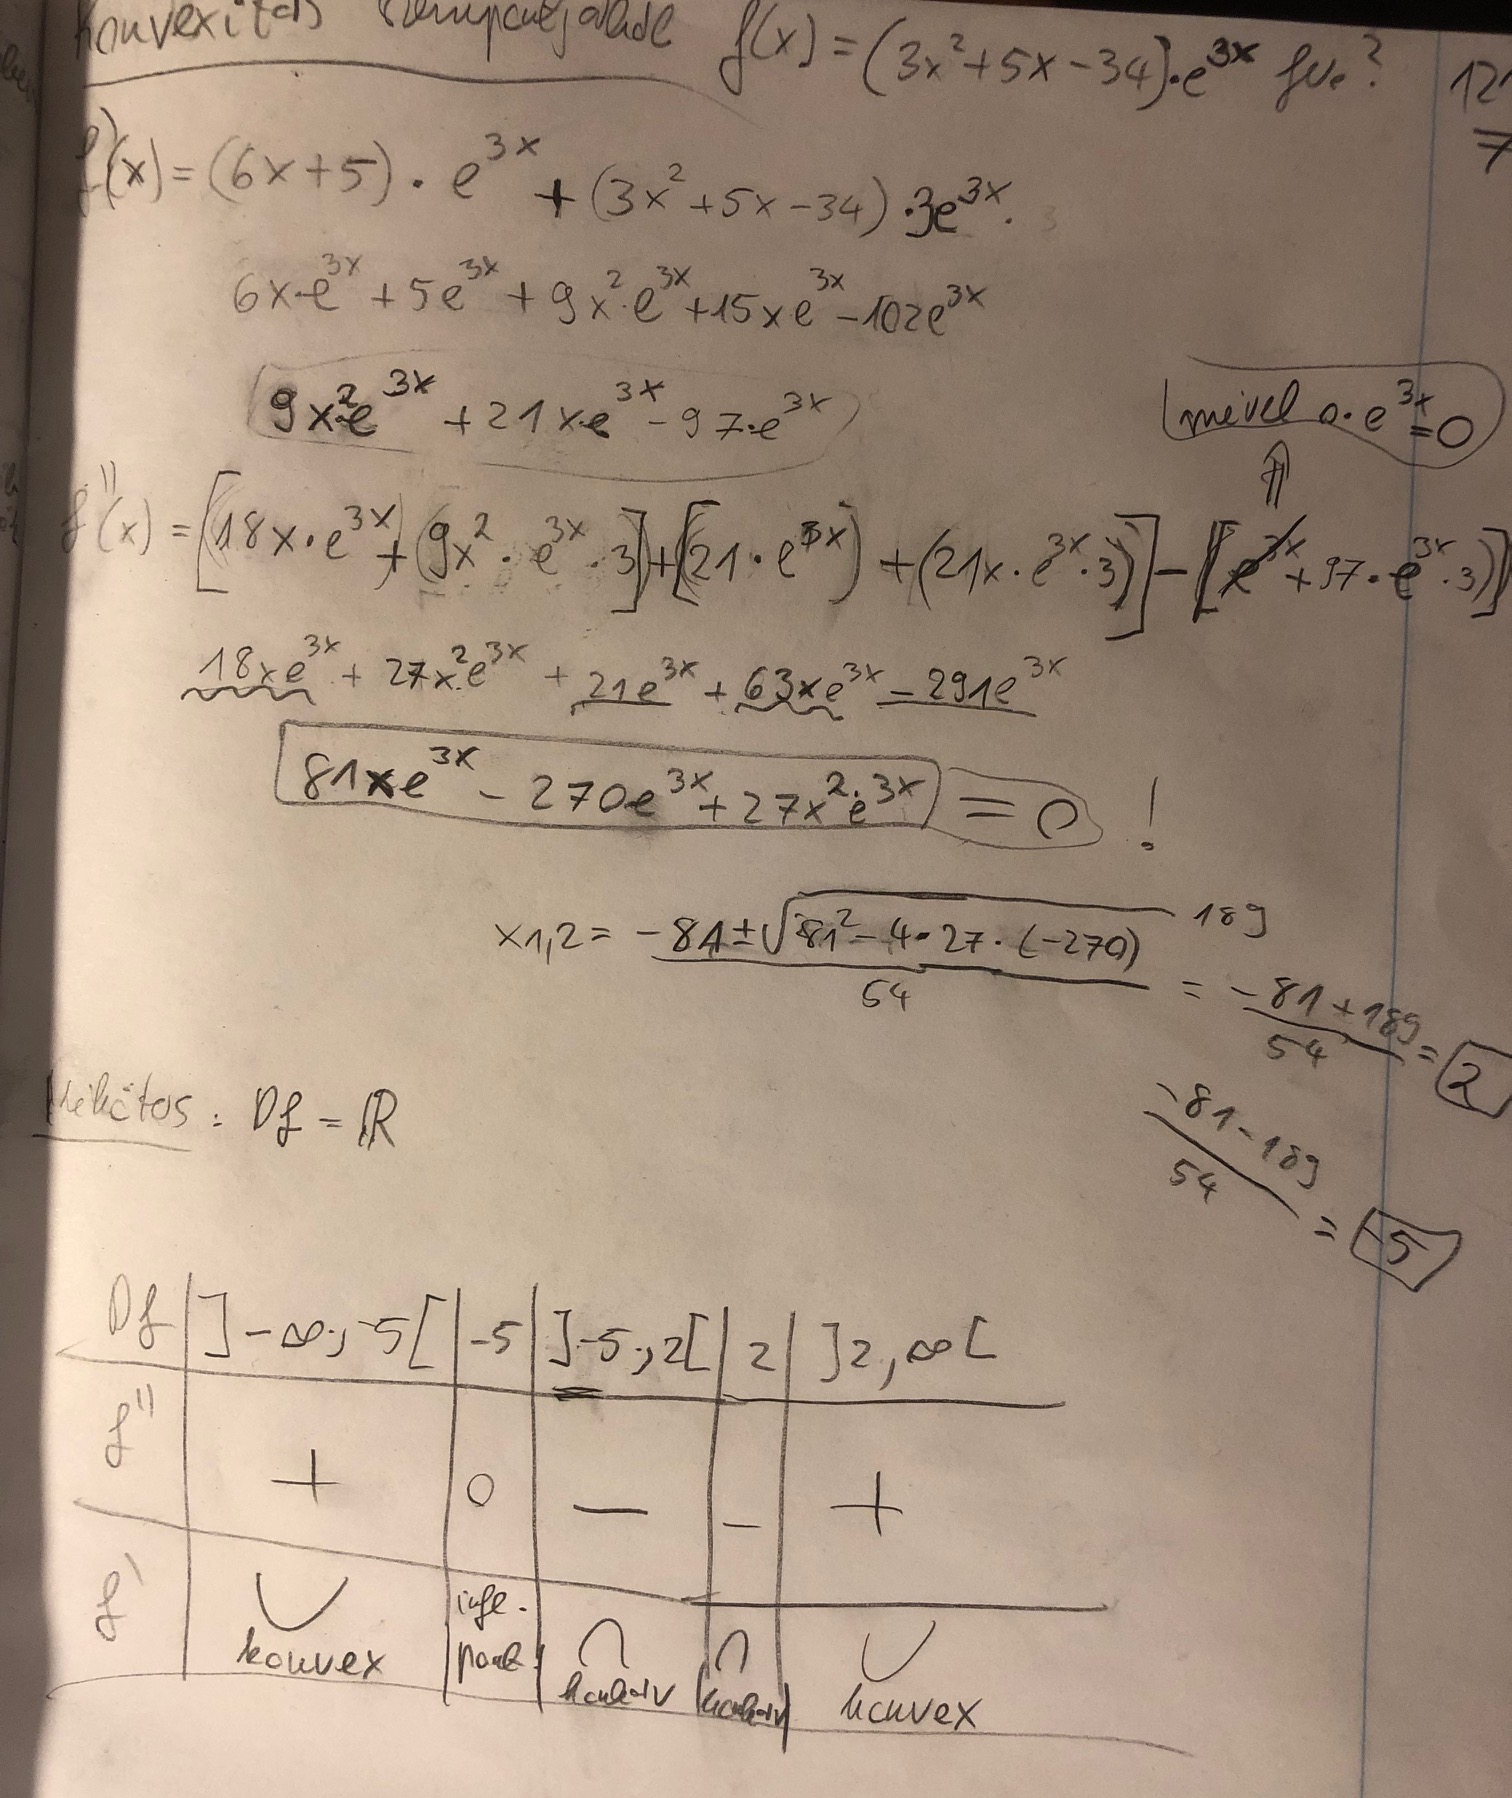 Konvexitás szempontjából f(x) = (3x²+5x-34)·e^3x fv.?
12
7
f'(x) = (6x+5) · e^3x + (3x²+5x-34) ·3e^3x.
6x·e^3x + 5e^3x + 9x²·e^3x + 15xe^3x - 102e^3x
9x²·e^3x + 21x·e^3x - 97·e^3x
mivel 0·e^3x = 0
⇑
f''(x) = [(18x·e^3x) + (9x²·e^3x·3)] + [(21·e^3x) + (21x·e^3x·3)] - [(e^3x + 97·e^3x·3)]
18xe^3x + 27x²·e^3x + 21e^3x + 63xe^3x - 291e^3x
81xe^3x - 270e^3x + 27x²·e^3x = 0 !
x1,2 = (-81±√(81²-4·27·(-270)))/54 = (-81+189)/54 = 2
189
(-81-189)/54 = -5
: Df = ℝ
Df | ]-∞; -5[ | -5 | ]-5; 2[ | 2 | ]2, ∞[
f'' | + | 0 | − | − | +
f' | ∪ konvex | infl. pont | ∩ konkáv | ∩ konkáv | ∪ konvex